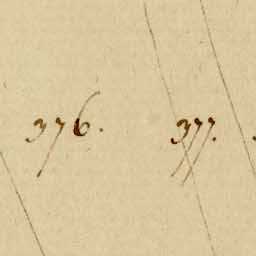 376. 377.